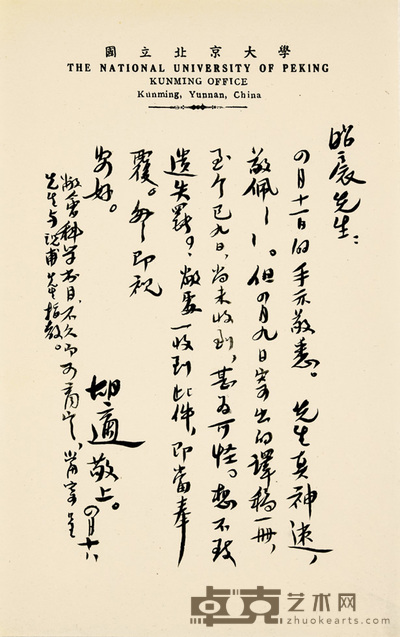 國立北京大學
THE NATIONAL UNIVERSITY OF PEKING
KUNMING OFFICE
Kunming, Yunnan, China
昭宸先生：
四月十一日的手示敬悉。先生真神速，
敬佩敬佩。但四月九日寄出的譯稿一冊，
至今已九日，尚未收到，甚為可怪。想不致
遺失罷？敝處一收到此件，即當奉
覆。匆匆即祝
安好。
胡適敬上。四月十八
敝會科學書目，不久即可商定，當寄呈
先生與 先生指教。
卓克艺术网
www.zhuokearts.com